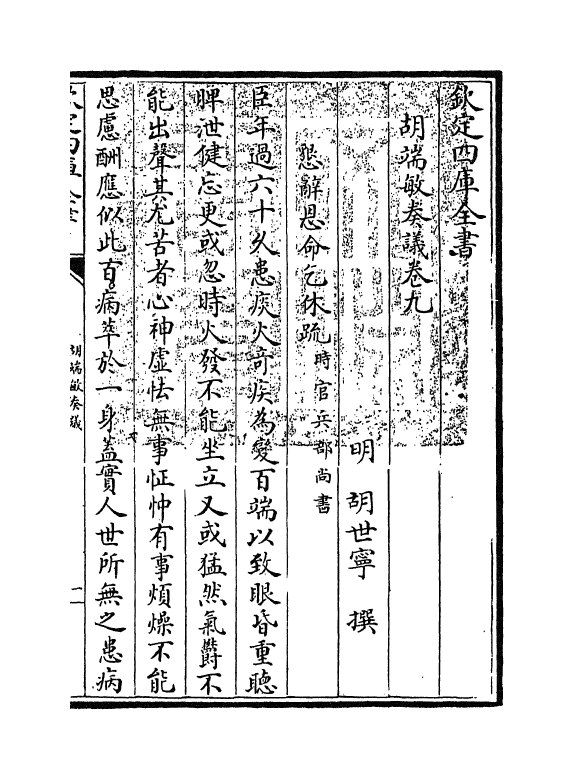 欽定四庫全書
胡端敏奏議卷九
明 胡世寧 撰
懇辭恩命乞休疏時官兵部尚書
臣年過六十久患痰火竒疾為變百端以致眼昏重聴
脾泄健忘更或忽時火發不能坐立又或猛然氣欝不
能出聲其尤苦者心神虛怯無事怔忡有事煩燥不能
思慮酬應似此百病萃於一身葢實人世所無之患病
欽定四庫全書
胡端敏奏議
一